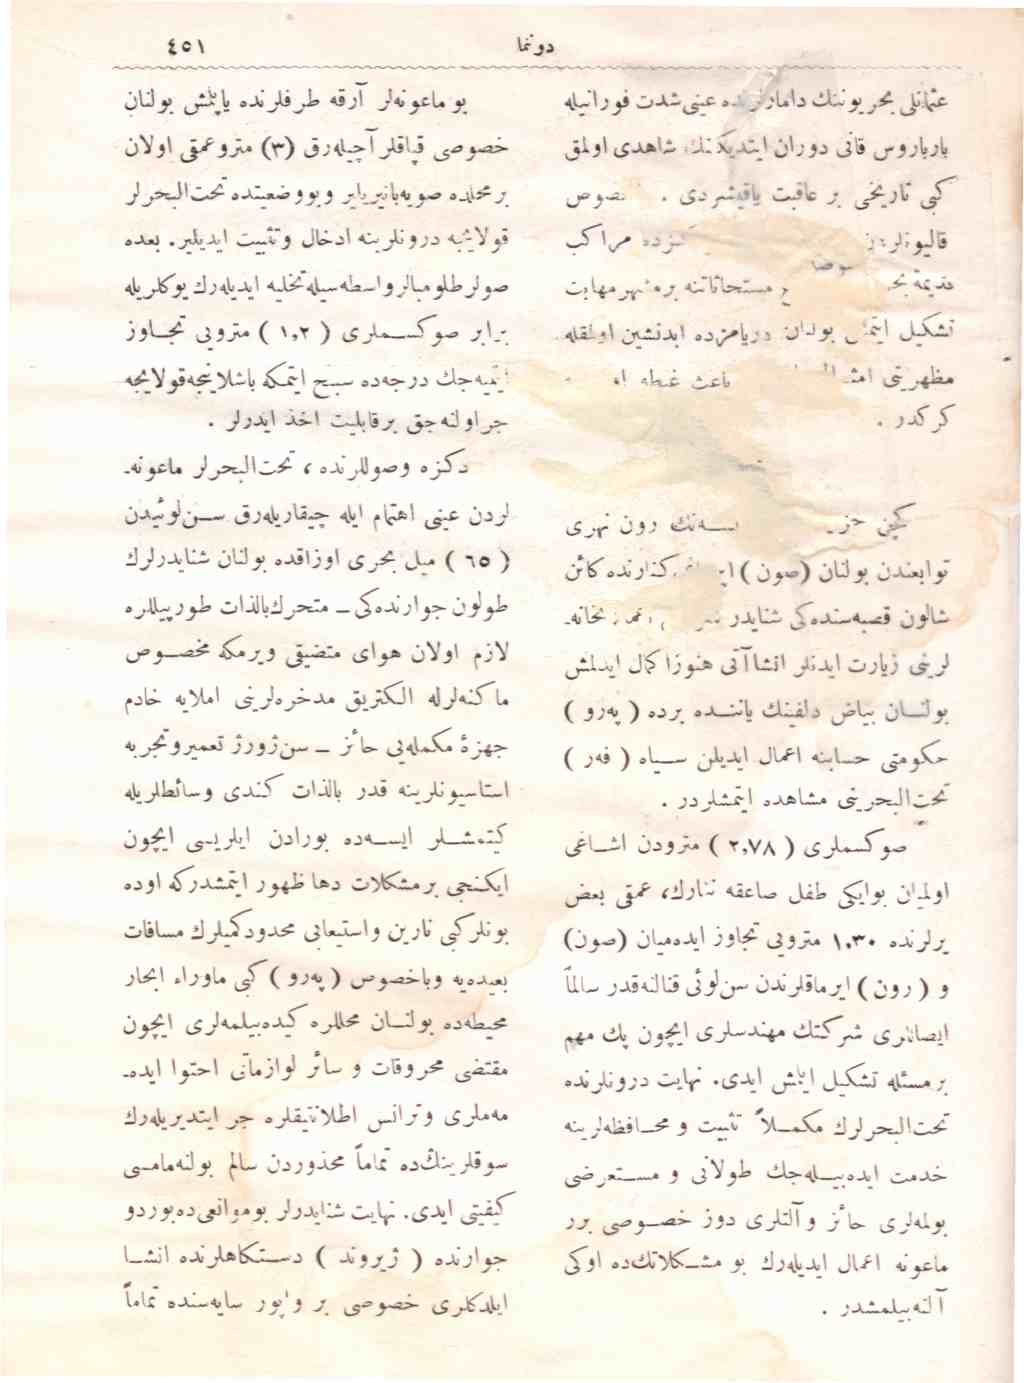 دونما
٤٥١
عثمانلی بحریوننك دامارلرنده عینی شدت فورانیله
بارباروس قانی دوران ایتدیکنك شاهدی اولمق
کبی تاریخی بر عاقبت یاقیشردی .
مراکب
مستحاثاتنه بر مشهر مهابت
تشکیل ایتمش بولنان دریامزده ابدنشین اولمقله
مظهریتی باعث غبطه
کرکدر .
کچن نك رون نهری
توابعندن بولنان (صون) کنارنده کائن
شالون قصبه‌سنده‌کی شنایدر
لرینی زیارت ایدنلر انشاآتی هنوز اکمال ایدلمش
بولنـان بیاض دلفینك یاننـده برده ( په‌رو )
حکومتی حسابنه اعمال ایدیلن سـیاه ( فه‌ر )
تحت‌البحرینی مشاهده ایتمشلردر .
صوکسملری ( ٢,٧٨ ) مترودن اشـاغی
اولمیان بوایکی طفل صاعقه نثارك، عمقی بعض
یرلرنده ١,٣٠ مترویی تجاوز ایده‌میان (صون)
و ( رون ) ایرماقلرندن سن‌لوئی قنالنه‌قدر سالماً
ایصاللری شرکتك مهندسلری ایچون پك مهم
بر مسئله تشکیل ایتمش ایدی. نهایت درونلرنده
تحت‌البحرلرك مکمـلاً تثبیت و محـافظه‌لرینه
خدمت ایده‌بیـله‌جك طولانی و مسـتعرضی
بولمه‌لری حائز و آلتلری دوز خصـوصی برر
ماعونه اعمال ایدیله‌رك بو مشـکلاتك‌ده اوکی
آلنه‌بیلمشدر .
بو ماعونه‌لر آرقه طرفلرنده یاپلمش بولنان
خصوصی قپاقلر آچیله‌رق (٣) مترو عمقی اولان
بر محلده صویه‌باتیریلیر و بو وضعیتده تحت‌البحرلر
قولایجه درونلرینه ادخال و تثبیت ایدیلیر. بعده
صولر طلومبالر واسطه‌سیله تخلیه ایدیله‌رك یوکلریله
برابر صوکسـملری ( ١,٢ ) مترویی تجـاوز
ایتمیه‌جك درجه‌ده سبح ایتمکه باشلاینجه قولایجه
جر اولنه‌جق بر قابلیت اخذ ایدرلر .
دکزه وصوللرنده ، تحت‌البحرلر ماعونه‌ـ
لردن عینی اهتمام ایله چیقاریله‌رق سـن‌لوئیدن
( ٦٥ ) میل بحری اوزاقده بولنان شنایدرلرك
طولون جوارنده‌کی ــ متحرك‌بالذات طورپیللره
لازم اولان هوای متضیقی ویرمکه مخصـوص
ماکنه‌لرله الکتریق مدخره‌لرینی املایه خادم
جهزهٔ مکمله‌یی حائز ــ سن‌ژورژ تعمیر و تجربه
استاسیونلرینه قدر بالذات کندی وسائطلریله
کیتمشـلر ایسـه‌ده بورادن ایلریسی ایچون
ایکنجی بر مشکلات دها ظهور ایتمشدرکه اوده
بونلرکبی نارین و استیعابی محدود کمیلرك مسافات
بعیده‌یه و باخصوص ( په‌رو ) کبی ماوراء ابحار
محیطه‌ده بولنـان محللره کیده‌بیلمه‌لری ایچون
مقتضی محروقات و سائر لوازماتی احتوا ایده‌ـ
مه‌ملری و ترانس اطلانتیقلره جر ایتدیریله‌رك
سوقلرینك‌ده تماماً محذوردن سالم بولنه‌مامـسی
کیفیتی ایدی. نهایت شنایدرلر بو موانعی‌ده‌بوردو
جوارنده ( ژیروند ) دسـتکاهلرنده انشـا
ایلدکلری خصوصی بر واپور سایه‌سنده تماماً